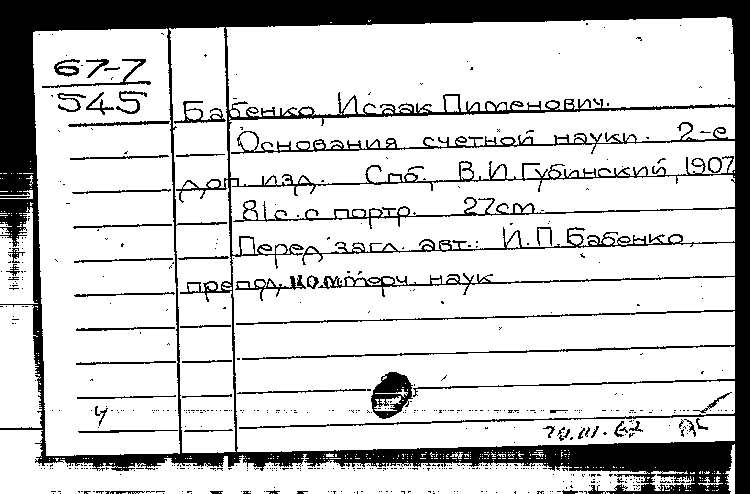 67-7
545
Бабенко, Исаак Пименович.
Основания счетной науки. 2-е
доп. изд. Спб., В.И.Губинский, 1907.
81с. с портр. 27cm.
Перед загл. авт.: И.П.Бабенко,
препод. коммерч. наук
4